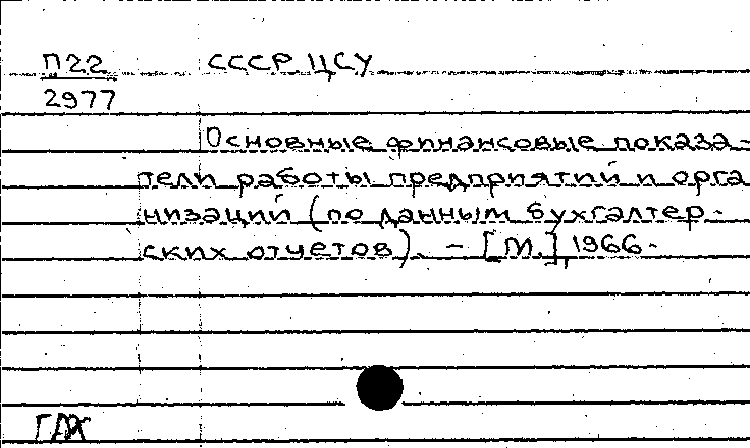 П22 СССР ЦСУ
2977
Основные финансовые показа-
тели работы предприятий и орга
низаций (по данным бухгалтер-
ских отчетов). - [М.], 1966.